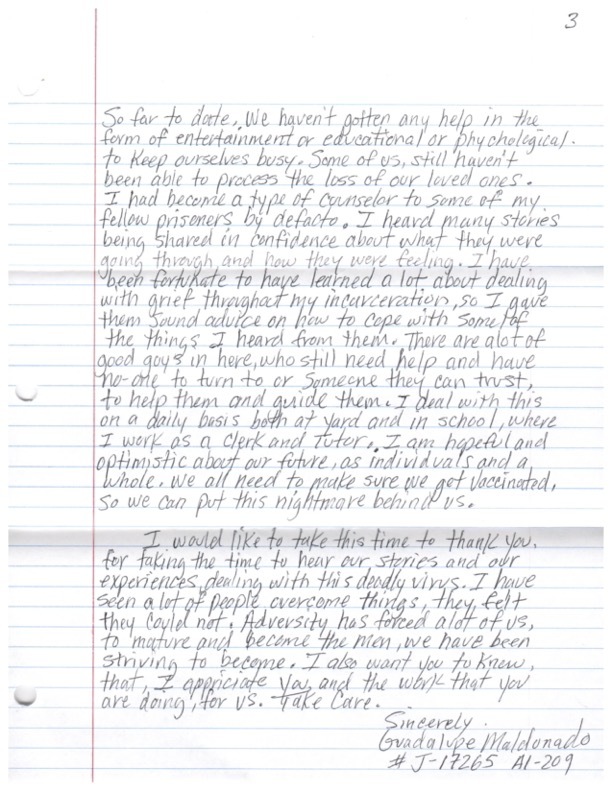 3
So far to date. We haven't gotten any help in the
form of entertainment or educational or phychological.
to keep ourselves busy. Some of us, still haven't
been able to process the loss of our loved ones.
I had become a type of counselor to some of my
fellow prisoners by defacto. I heard many stories
being shared in confidence about what they were
going through and how they were feeling. I have
been fortukate to have learned a lot about dealing
with grief throughout my incarceration, so I gave
them sound advice on how to cope with some of
the things I heard from them. There are alot of
good goys in here, who still need help and have
no-one to turn to or someone they can trust,
to help them and guide them. I deal with this
on a daily basis both at yard and in school, where
I work as a clerk and tutor. I am hopeful and
optimistic about our future, as individuals and a
whole. We all need to make sure we get vaccinated,
so we can put this nightmare behind us.
I would like to take this time to thank you,
for taking the time to hear our stories and our
experiences, dealing with this deadly virus. I have
seen a lot of people overcome things, they felt
they could not. Adversity has forced alot of us,
to mature and become the men, we have been
striving to become. I also want you to know,
that, I appriciate you, and the work that you
are doing, for us. Take Care.
Sincerely.
Guadalupe Maldonado
# J-17265 A1-209